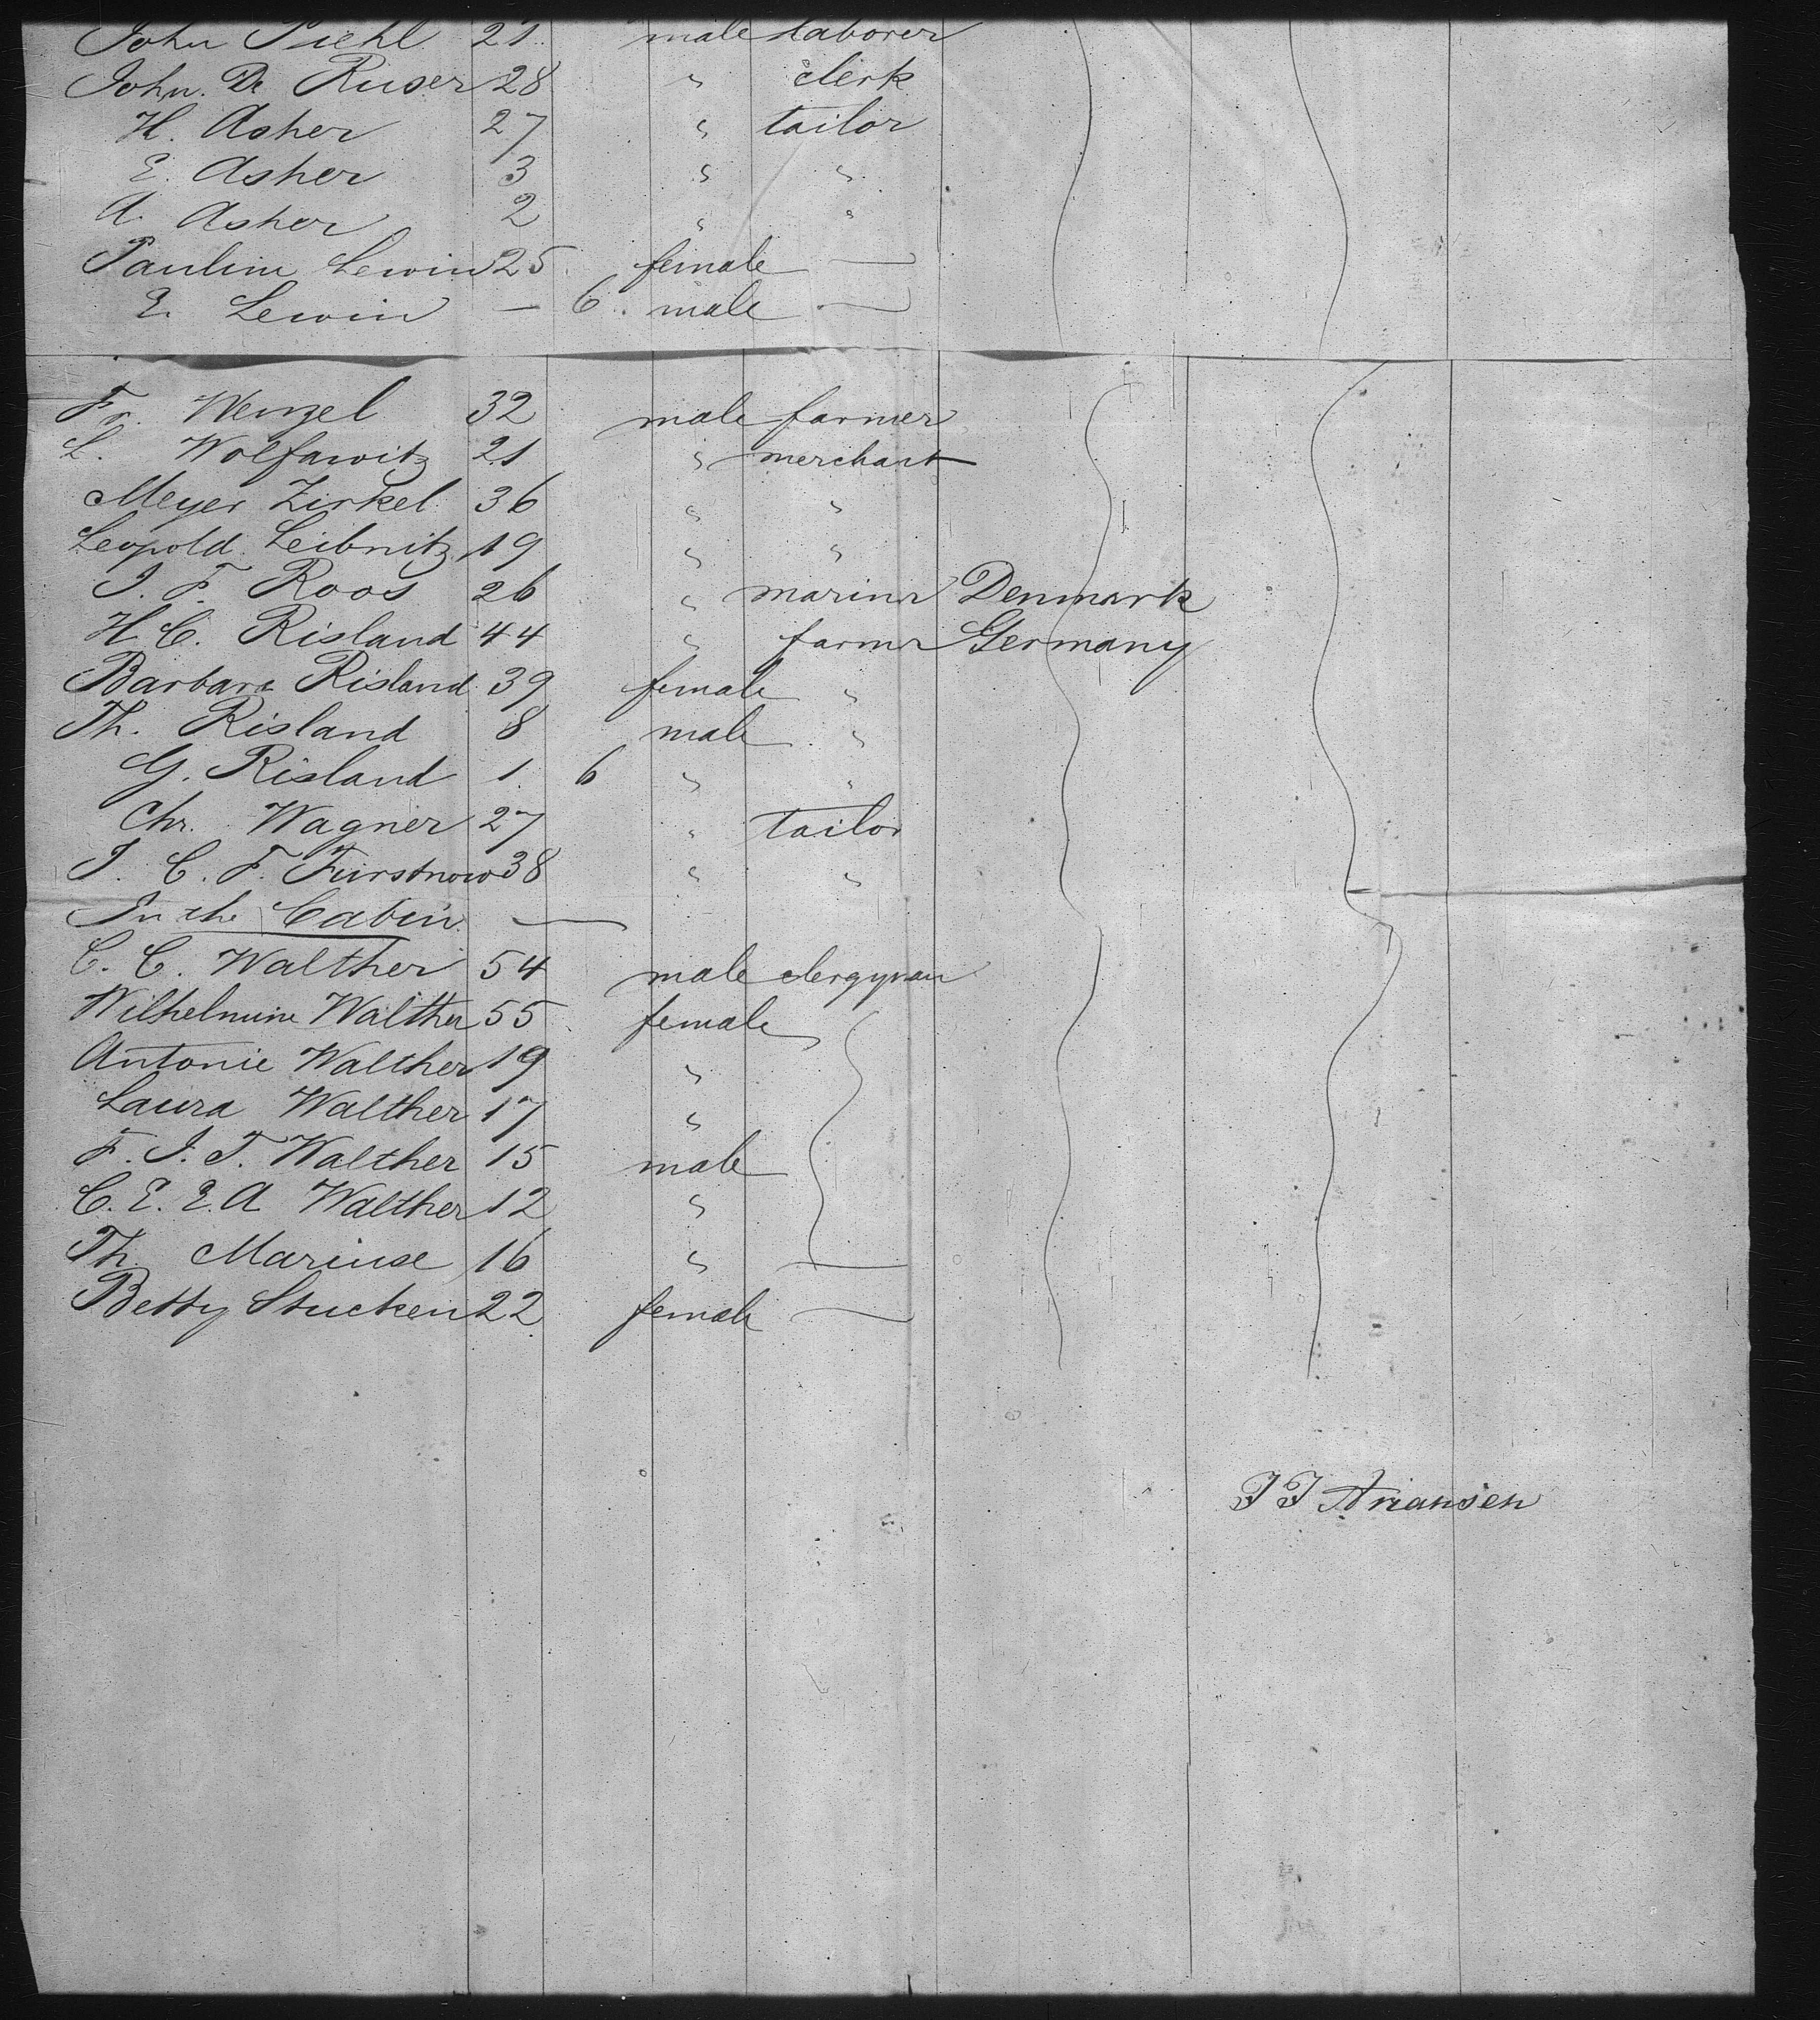 John Piehl 21 male laborer
John. De Ruser 28 " clerk
H. Asher 27 " tailor
E. Asher 3 " "
A. Asher 2 " "
Pauline Lewin 25 female —
E. Lewin — 6 male —
Fr. Wenzel 32 male farmer
L. Wolfawitz 21 " merchant
Meyer Zirkel 36 " "
Leopold Leibnitz 19 " "
J. F. Roos 26 " mariner Denmark
H. C. Risland 44 " farmer Germany
Barbara Risland 39 female "
Th. Risland 8 male "
G. Risland 1 6 " "
Chr. Wagner 27 " tailor
J. C. F. Fürstnow 38 " "
In the Cabin. —
C. C. Walther 54 male clergyman
Wilhelmine Walther 55 female
Antonie Walther 19 "
Laura Walther 17 "
F. J. T. Walther 15 male
C. E. E. A Walther 12 "
Th. Mariuse 16 " —
Betty Stucken 22 female —
J J Ariansen